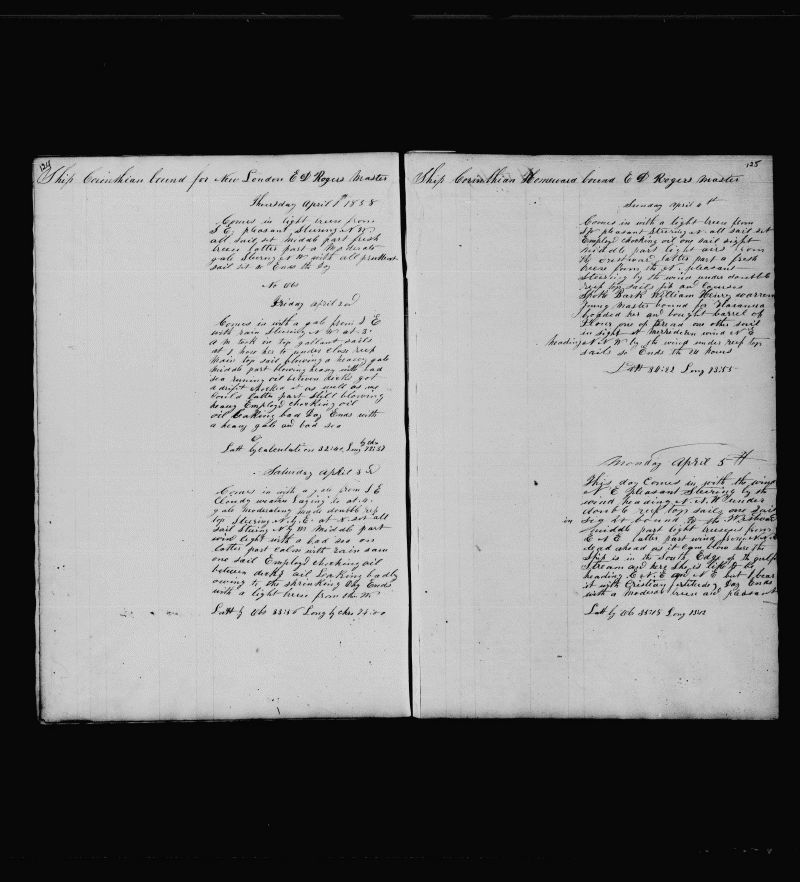 124
Ship Corinthian bound for New London E D Rogers Master
Thursday April 1st 1858
Comes in light breese from
S E pleasant Steering N W
all sail set middle part fresh
breese latter part a Moderate
gale Steering N W with all prudent
sail set so Ends the day
No Obs
Friday April 2nd
Comes in with a gale from S E
with rain Steering N W at 3
a m took in top gallant sails
at 1 hove her to under close reef
main top sail blowing a heavy gale
middle part blowing heavy with bad
sea running oil between decks got
adrift chocked it as well as we
could latter part still blowing
heavy Employd chocking oil
oil leaking bad Day Ends with
a heavy gale and bad sea
Latt by calculation 32:40 Long by chr
Saturday April 3d
Comes in with a gale from S E
Cloudy weather laying to at
gale moderating made doubble reef
top Steering N by E at set all
sail Steering N by W Middle part
wind light with a bad sea on
latter part calm with rain saw
one sail Employd chocking oil
between decks oil Leaking badly
owing to the shrinking Day Ends
with a light breese from the W
Latt by Obs 33:56 Long by chr
125
Ship Corinthian Homeward bound E D Rogers Master
Sunday April 4th
Comes in with a light breese from
SW pleasant Steering N all sail set
Employd chocking oil one sail sight
middle part light airs from
the westward latter part a fresh
breese from the N pleasant
Steering by the wind under doubble
reef top sails jib and courses
Spoke Bark William Henry warren
Master bound for Havanna
boarded her and bought barrel of
Flour one of Bread one other sail
in sight at merredien wind N E
heading N N W by the wind under reef top
sails so Ends the 24 hours
Latt Long
Monday April 5th
This day comes in with the wind
N E pleasant Steering by the
wind heading N N W under
doubble reef top sails one sail
in Sight bound to the
middle part light breeses from
E N E latter part wind from
dead ahead as it can blow here the
Ship is in the South Edge of the gulf
Stream and here she is like to be
heading E N E and N E but I bear
it with Cristian Day Ends
with a moderate breese and pleasant
Latt by Obs 35:18 Long